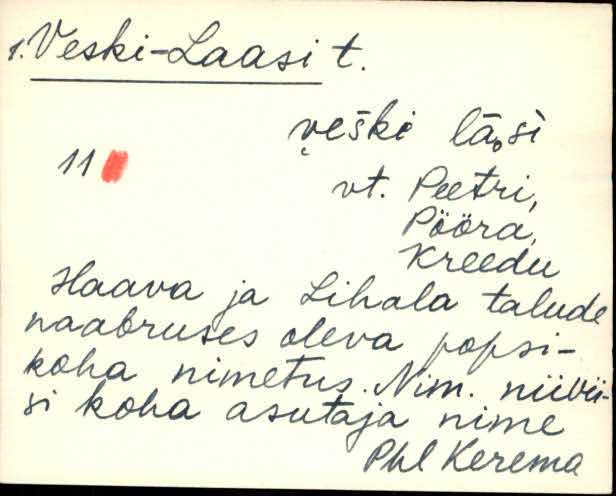 1. Veski-Laasi t.
ve̮ški lā̮si
11
vt. Peetri,
Pööra,
Kreedu
Haava ja Lihala talude
naabruses oleva popsi-
koha nimetus. Nim. niivii-
si koha asutaja nime
Phl Kerema